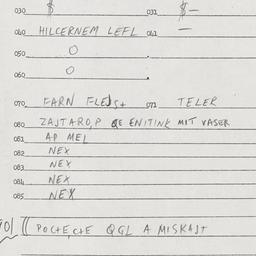 030 $ 031 $ —
040 HILCERNEM LEFL 041 —
050 O
060 O
070 FARN FLEJS+ 071 TELER
080 ZAJTARO,P QE ENITINK MIT VASER
081 AP MEL
082 NEX
083 NEX
084 NEX
085 NEX
POCTECTE QGL A MISKAJT